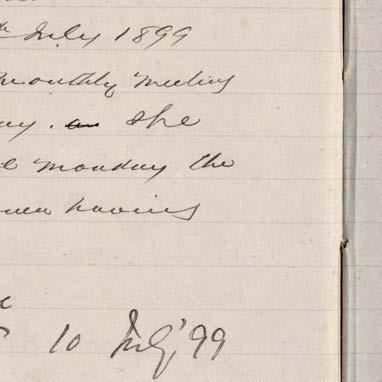 July 1899
monthly meeting
she
monday the
having
10 July '99